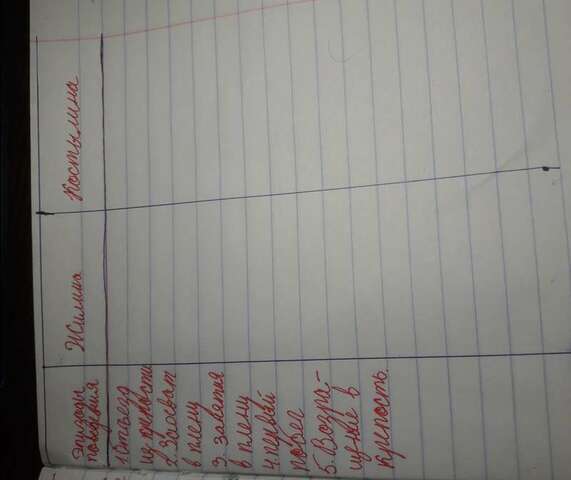 Эпизоды
поведения
Жилина
Костылина
1. Отъезд
из крепости
2. Захват
в плену
3. Заветка
в плену
4. первый
побег
5. Возра-
щение в
крипость.